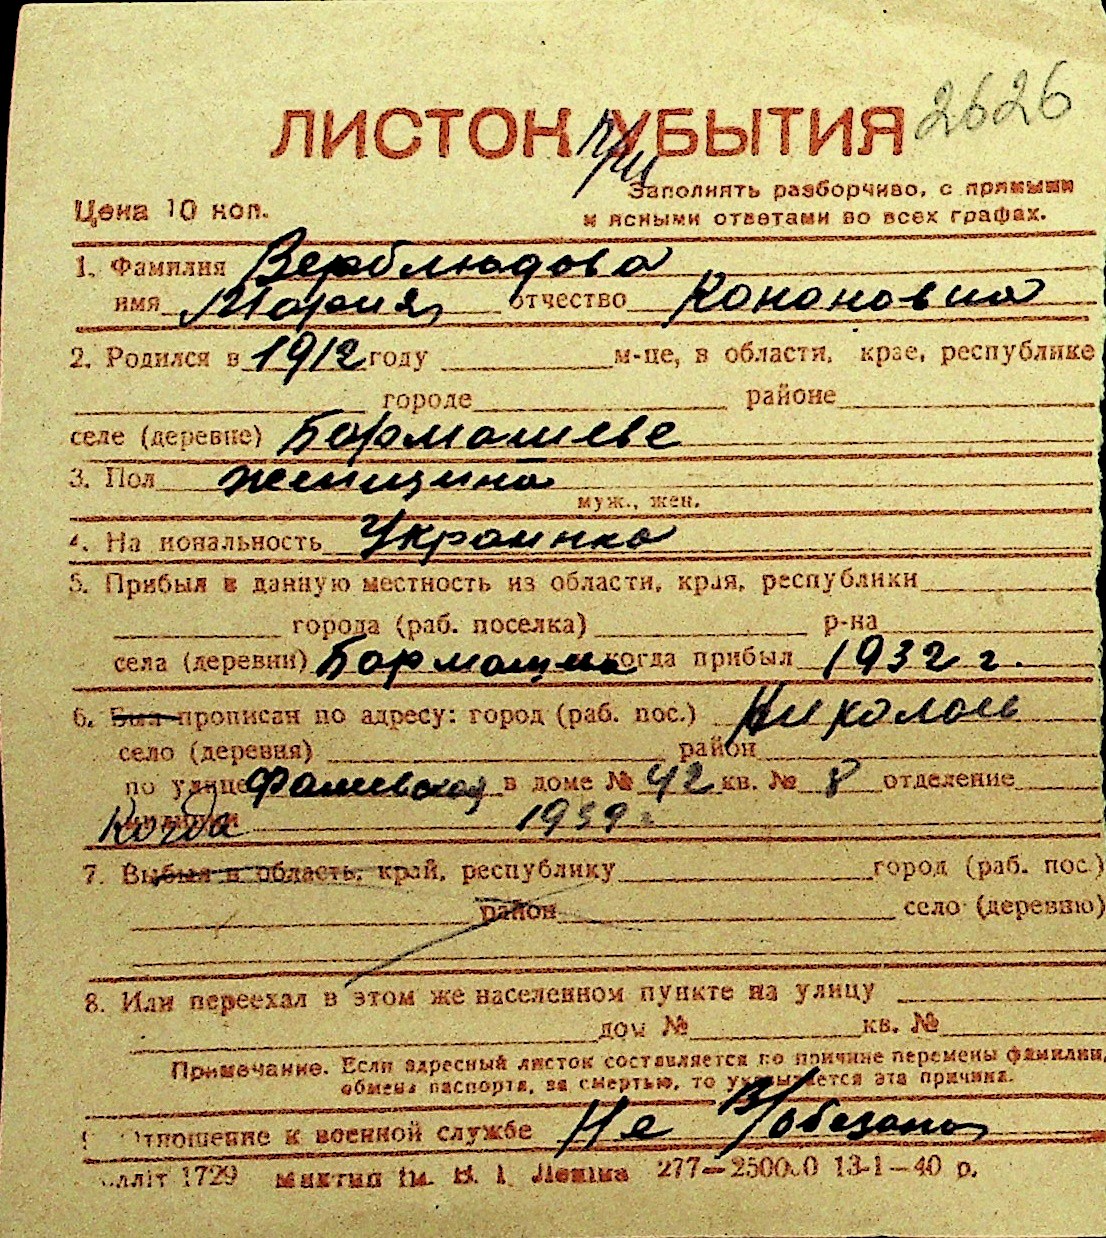 ЛИСТОК УБЫТИЯ 2626
при
Заполнять разборчиво, с прямыми
Цена 10 коп. и ясными ответами во всех графах.
1. Фамилия Верблюдова
имя Мария отчество Кононовна
2. Родился в 1912 году м-це, в области, крае, республике
городе районе
селе (деревне) Бармашеве
3. Пол женщина
муж., жен.
4. На иональность Украинка
5. Прибыл в данную местность из области, края, республики
города (раб. поселка) р-на
села (деревни) когда прибыл 1932 г.
6. Был прописан по адресу: город (раб. пос.) Николаев
село (деревня) район
по улице в доме № 42 кв. № 8 отделение
Когда 1939 г
7. Выбыл в область, край, республику город (раб. пос.)
район село (деревню)
8. Или переехал в этом же населенном пункте на улицу
дом № кв. №
Примечание. Если адресный листок составляется по причине перемены фамилии,
обмена паспорта, за смертью, то указывается эта причина.
Отношение к военной службе Не В/обязана
лліт 1729 ім. В. І. Леніна 277—250000 13-1—40 р.